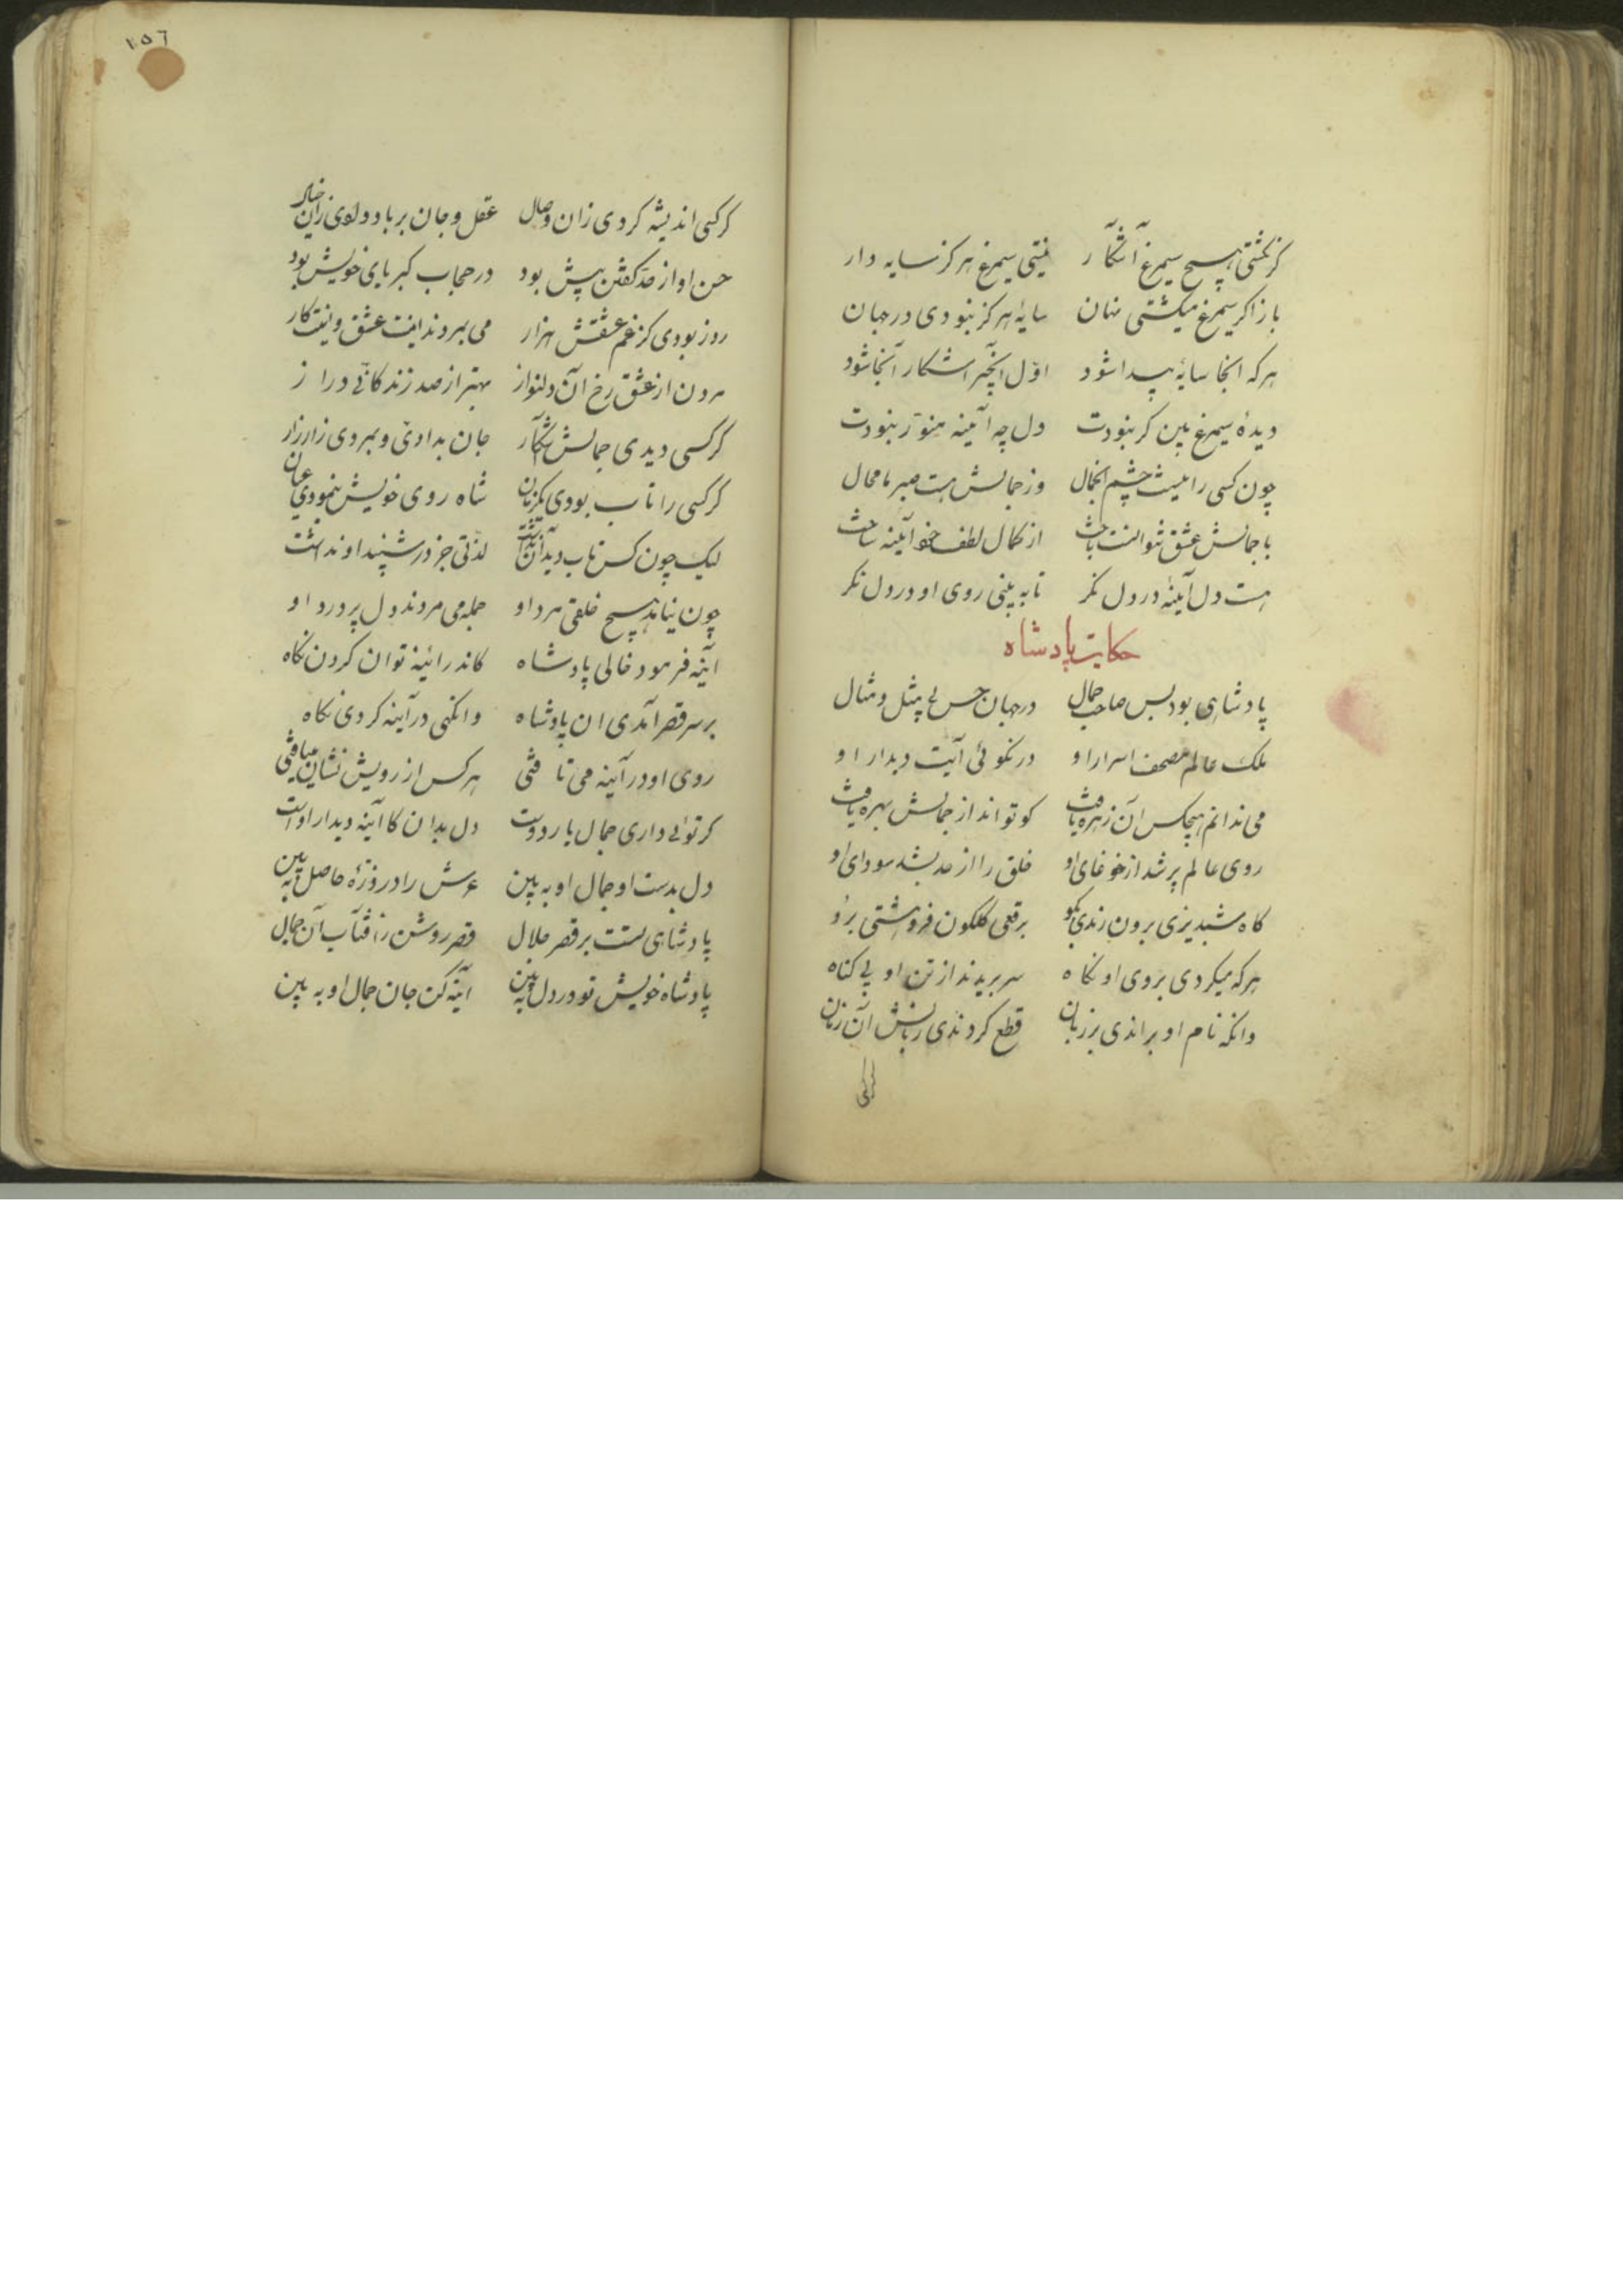 کر نکشتی هیچ سیمرغ آشکار نیستی سیمرغ هرکز سایه دار
باز اکر سیمرغ میکشتی نهان سایهٔ هرکز نبودی در جهان
هرکه انجا سایهٔ پیدا شود اوّل آنچیز اشکار آنجا شود
دیدهٔ سیمرغ بین کر نبودت دل چه آئینه منوّر نبودت
چون کسی را نیست چشم انجمال وز جمالش هست صبر ما محال
با جمالش عشق نتوانست باخت از کمال لطف خود آئینه ساخت
هست دل آئینهٔ در دل نکر تا به بینی روی او در دل نکر
حکایت پادشاه
پادشاهی بود بس صاحب جمال در جهان حسن بی مثل و مثال
ملک عالم مصحف اسرار او در نکوئی آیت دیدار او
می ندانم هیچکس آن زهره یافت کو تواند از جمالش بهره یافت
روی عالم پر شد از غوغای او خلق را از حد بشد سودای او
کاه شبدیزی برون زندی بکو برقعی کلکون فروهشتی برو
هرکه میکردی بروی او نکاه سر بریدند از تن او بی کناه
وانکه نام او براندی بر زبان قطع کردندی زبانش آن زمان
کر کسی
١٥٦
کر کسی اندیشه کردی زان وصال عقل و جان بر باد دادی زان خیال
حسن او از حدّ کفتن پیش بود در حجاب کبریای خویش بود
روز بودی کز غم عشقش هزار می بمردند اینت عشق و اینت کار
مردن از عشق رخ آن دلنواز بهتر از صد زندکانی دراز
کر کسی دیدی جمالش آشکار جان بدادی و بمردی زار زار
کر کسی را تاب بودی یکزمان شاه روی خویش بنمودی عیان
لیک چون کس تاب دید آن نداشت لذّتی جز در شنید او نداشت
چون نیامد هیچ خلقی مرد او جمله می مردند دل پر درد او
آینه فرمود حالی پادشاه کاندر آئینه توان کردن نکاه
بر سر قصر آمدی ان پادشاه وانکهی در آینه کردی نکاه
روی او در آینه می تافتی هر کس از رویش نشان میافتی
کر تو می داری جمال یار دوست دل بدان کا آینه دیدار اوست
دل بدست او جمال او به بین عرش را در روزهٔ حاصل به بین
پادشاهی تست بر قصر جلال قصر روشن ز افتاب آن جمال
پادشاه خویش تو در دل به بین آینه کن جان جمال او به بین